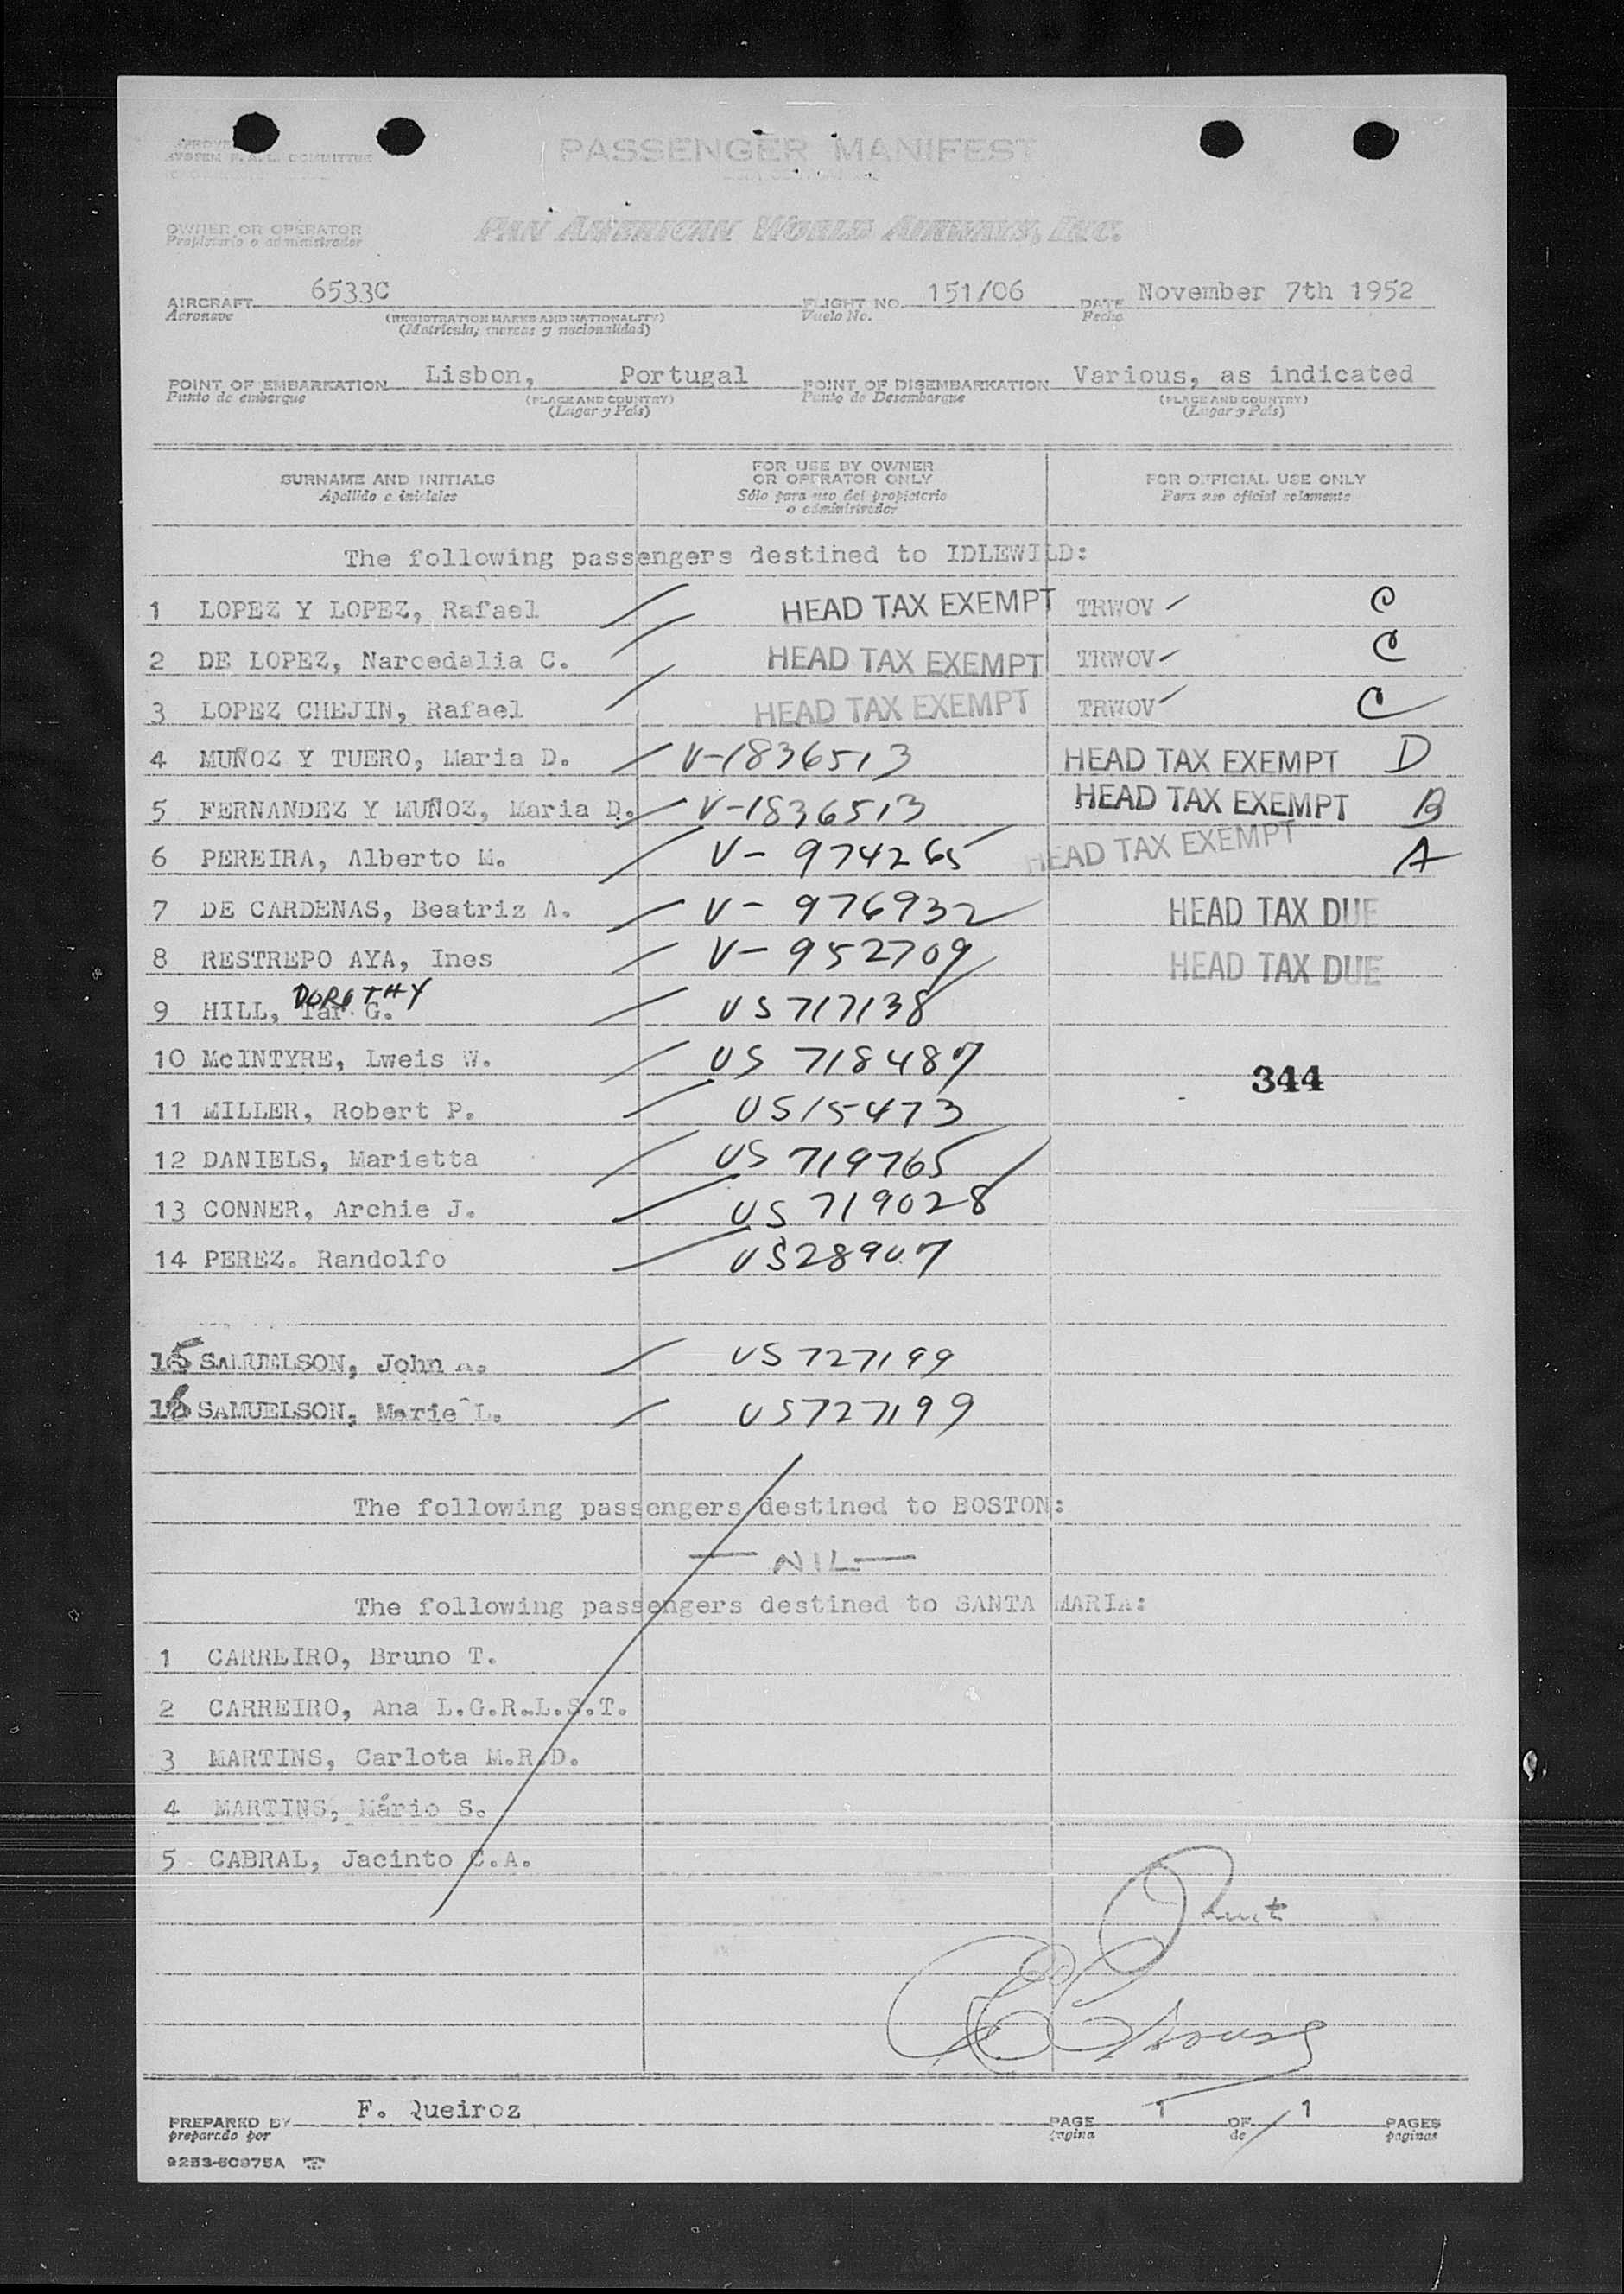 SYSTEM F.A.L. COMMITTEE
PASSENGER MANIFEST
OWNER OR OPERATOR
Propietario o administrador
PAN AMERICAN WORLD AIRWAYS, INC.
AIRCRAFT 6533C FLIGHT NO. 151/06 DATE November 7th 1952
Aeronave (REGISTRATION MARKS AND NATIONALITY) Vuelo No. Fecha
(Matrícula, marcas y nacionalidad)
POINT OF EMBARKATION Lisbon, Portugal POINT OF DISEMBARKATION Various, as indicated
Punto de embarque (PLACE AND COUNTRY) Punto de Desembarque (PLACE AND COUNTRY)
(Lugar y País) (Lugar y País)
SURNAME AND INITIALS FOR USE BY OWNER OR OPERATOR ONLY FOR OFFICIAL USE ONLY
Apellido e iniciales Sólo para uso del propietario o administrador Para uso oficial solamente
The following passengers destined to IDLEWILD:
1 LOPEZ Y LOPEZ, Rafael HEAD TAX EXEMPT TRWOV C
2 DE LOPEZ, Narcedalia C. HEAD TAX EXEMPT TRWOV C
3 LOPEZ CHEJIN, Rafael HEAD TAX EXEMPT TRWOV C
4 MUÑOZ Y TUERO, Maria D. V-1836513 HEAD TAX EXEMPT D
5 FERNANDEZ Y MUÑOZ, Maria D. V-1836513 HEAD TAX EXEMPT B
6 PEREIRA, Alberto M. V- 974265 HEAD TAX EXEMPT A
7 DE CARDENAS, Beatriz A. V- 976932 HEAD TAX DUE
8 RESTREPO AYA, Ines V- 952709 HEAD TAX DUE
DOROTHY
9 HILL, Tar G. US 717138
10 McINTYRE, Lweis W. US 718487
344
11 MILLER, Robert P. US15473
12 DANIELS, Marietta US 719765
13 CONNER, Archie J. US 719028
14 PEREZ. Randolfo US28907
15 SAMUELSON, John A. US 727199
16 SAMUELSON, Marie L. US727199
The following passengers destined to BOSTON:
— NIL —
The following passengers destined to SANTA MARIA:
1 CARREIRO, Bruno T.
2 CARREIRO, Ana L.G.R.L.S.T.
3 MARTINS, Carlota M.R.D.
4 MARTINS, Mário S.
5 CABRAL, Jacinto C.A.
PREPARED BY F. Queiroz PAGE 1 OF 1 PAGES
preparado por página de páginas
9253-50975A